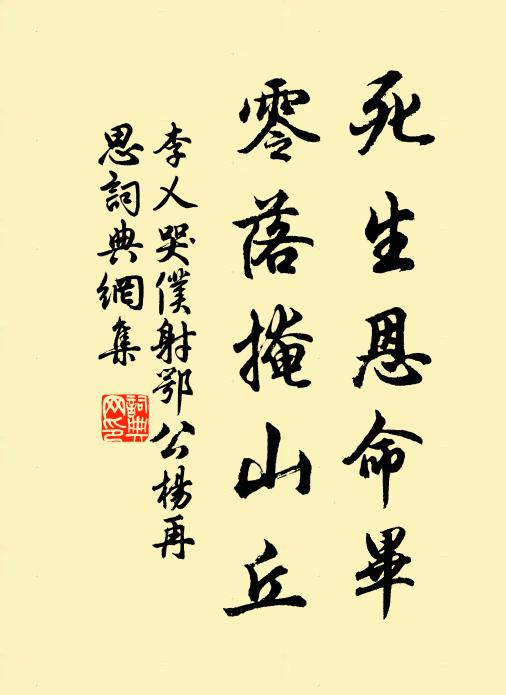 死生恩命畢
零落掩山丘
李乂哭僕射鄂公楊再
思詞典網集
詞典
网印